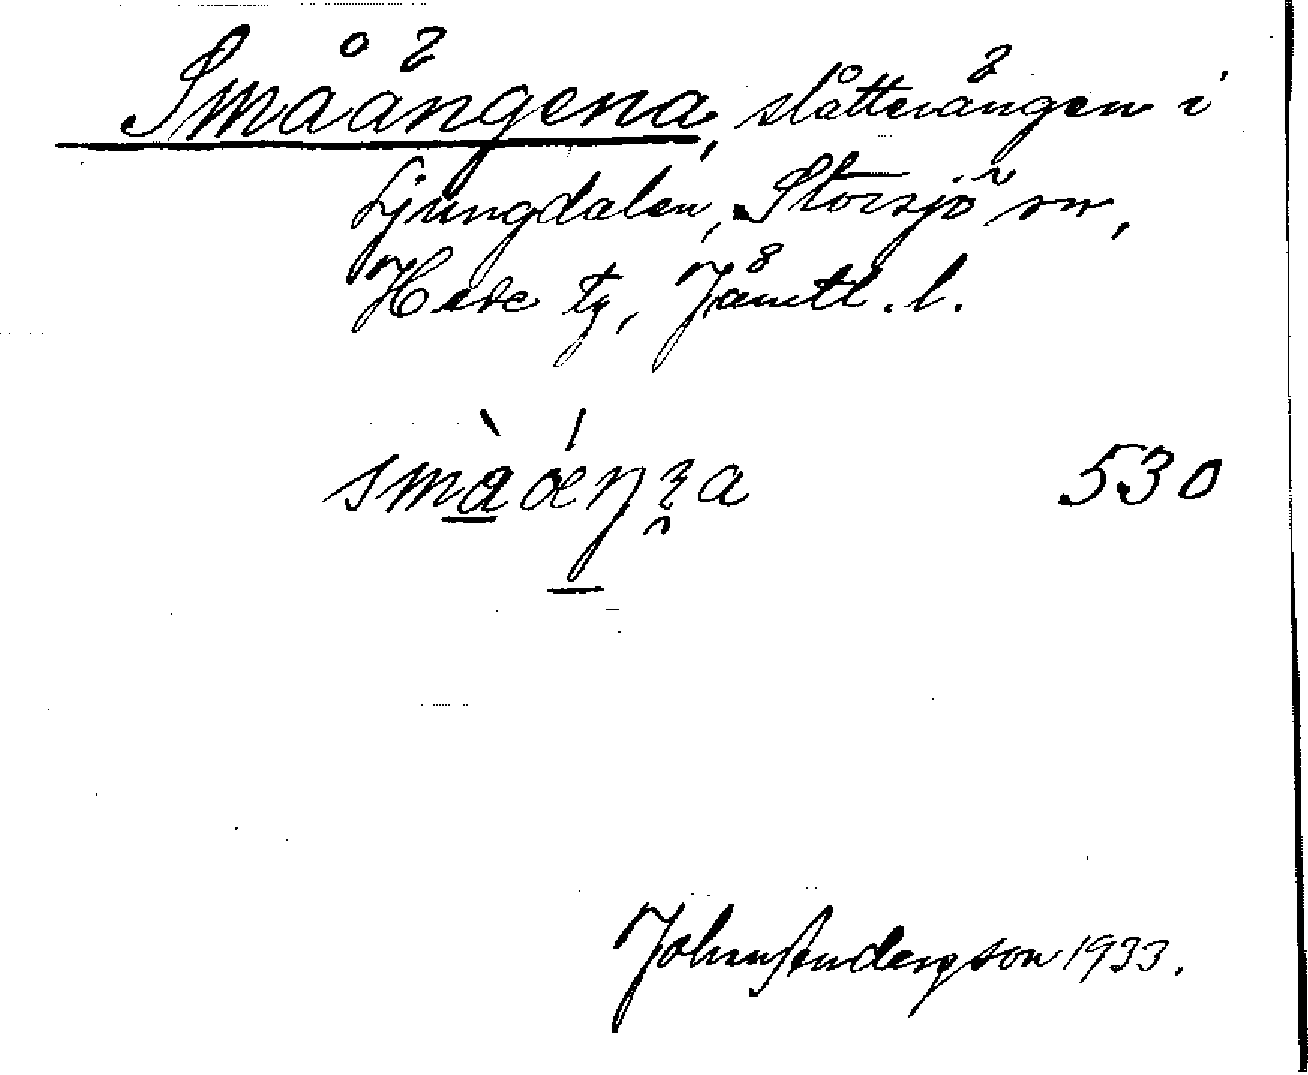 Småängena, slåtterängen i
Ljungdalen, Storsjö sn,
Hede tg, Jämtl. l.
småæŋɜa 530
John Anderson 1933.